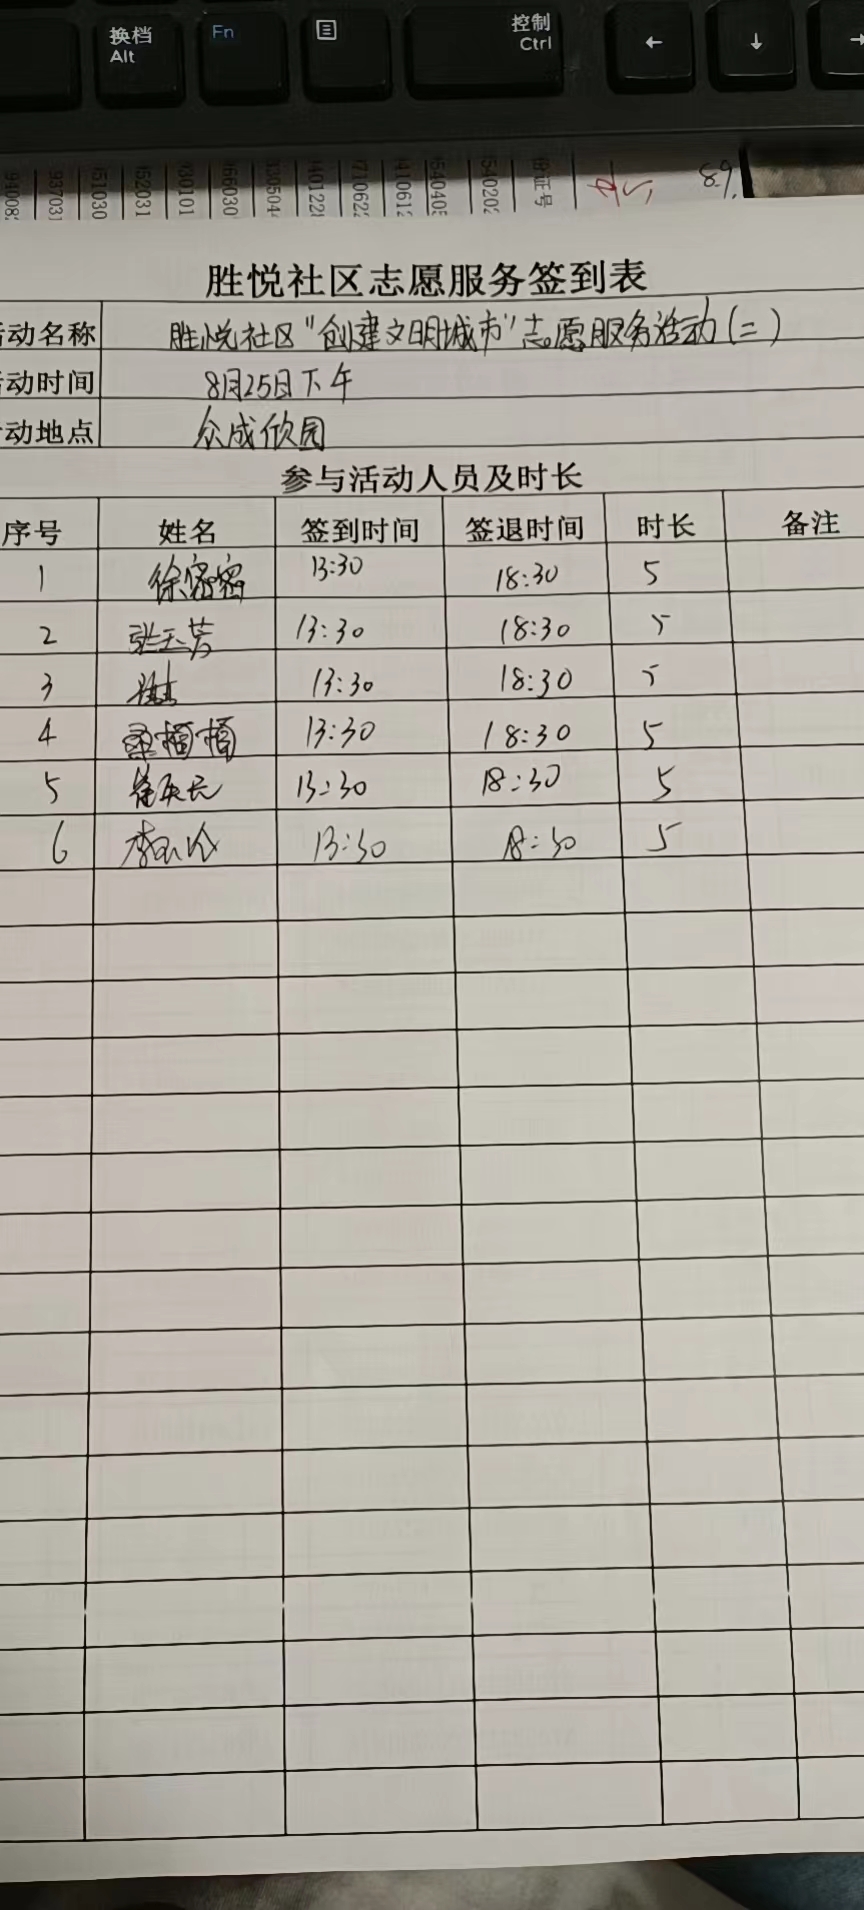 换档
Alt
Fn
控制
Ctrl
←
↓
→
证号
89.
胜悦社区志愿服务签到表
动名称 胜悦社区"创建文明城市"志愿服务活动(二)
动时间 8月25日下午
动地点 众成欣园
参与活动人员及时长
序号 姓名 签到时间 签退时间 时长 备注
1 徐密密 13:30 18:30 5
2 张玉芳 13:30 18:30 5
3 13:30 18:30 5
4 13:30 18:30 5
5 13:30 18:30 5
6 13:30 18:30 5